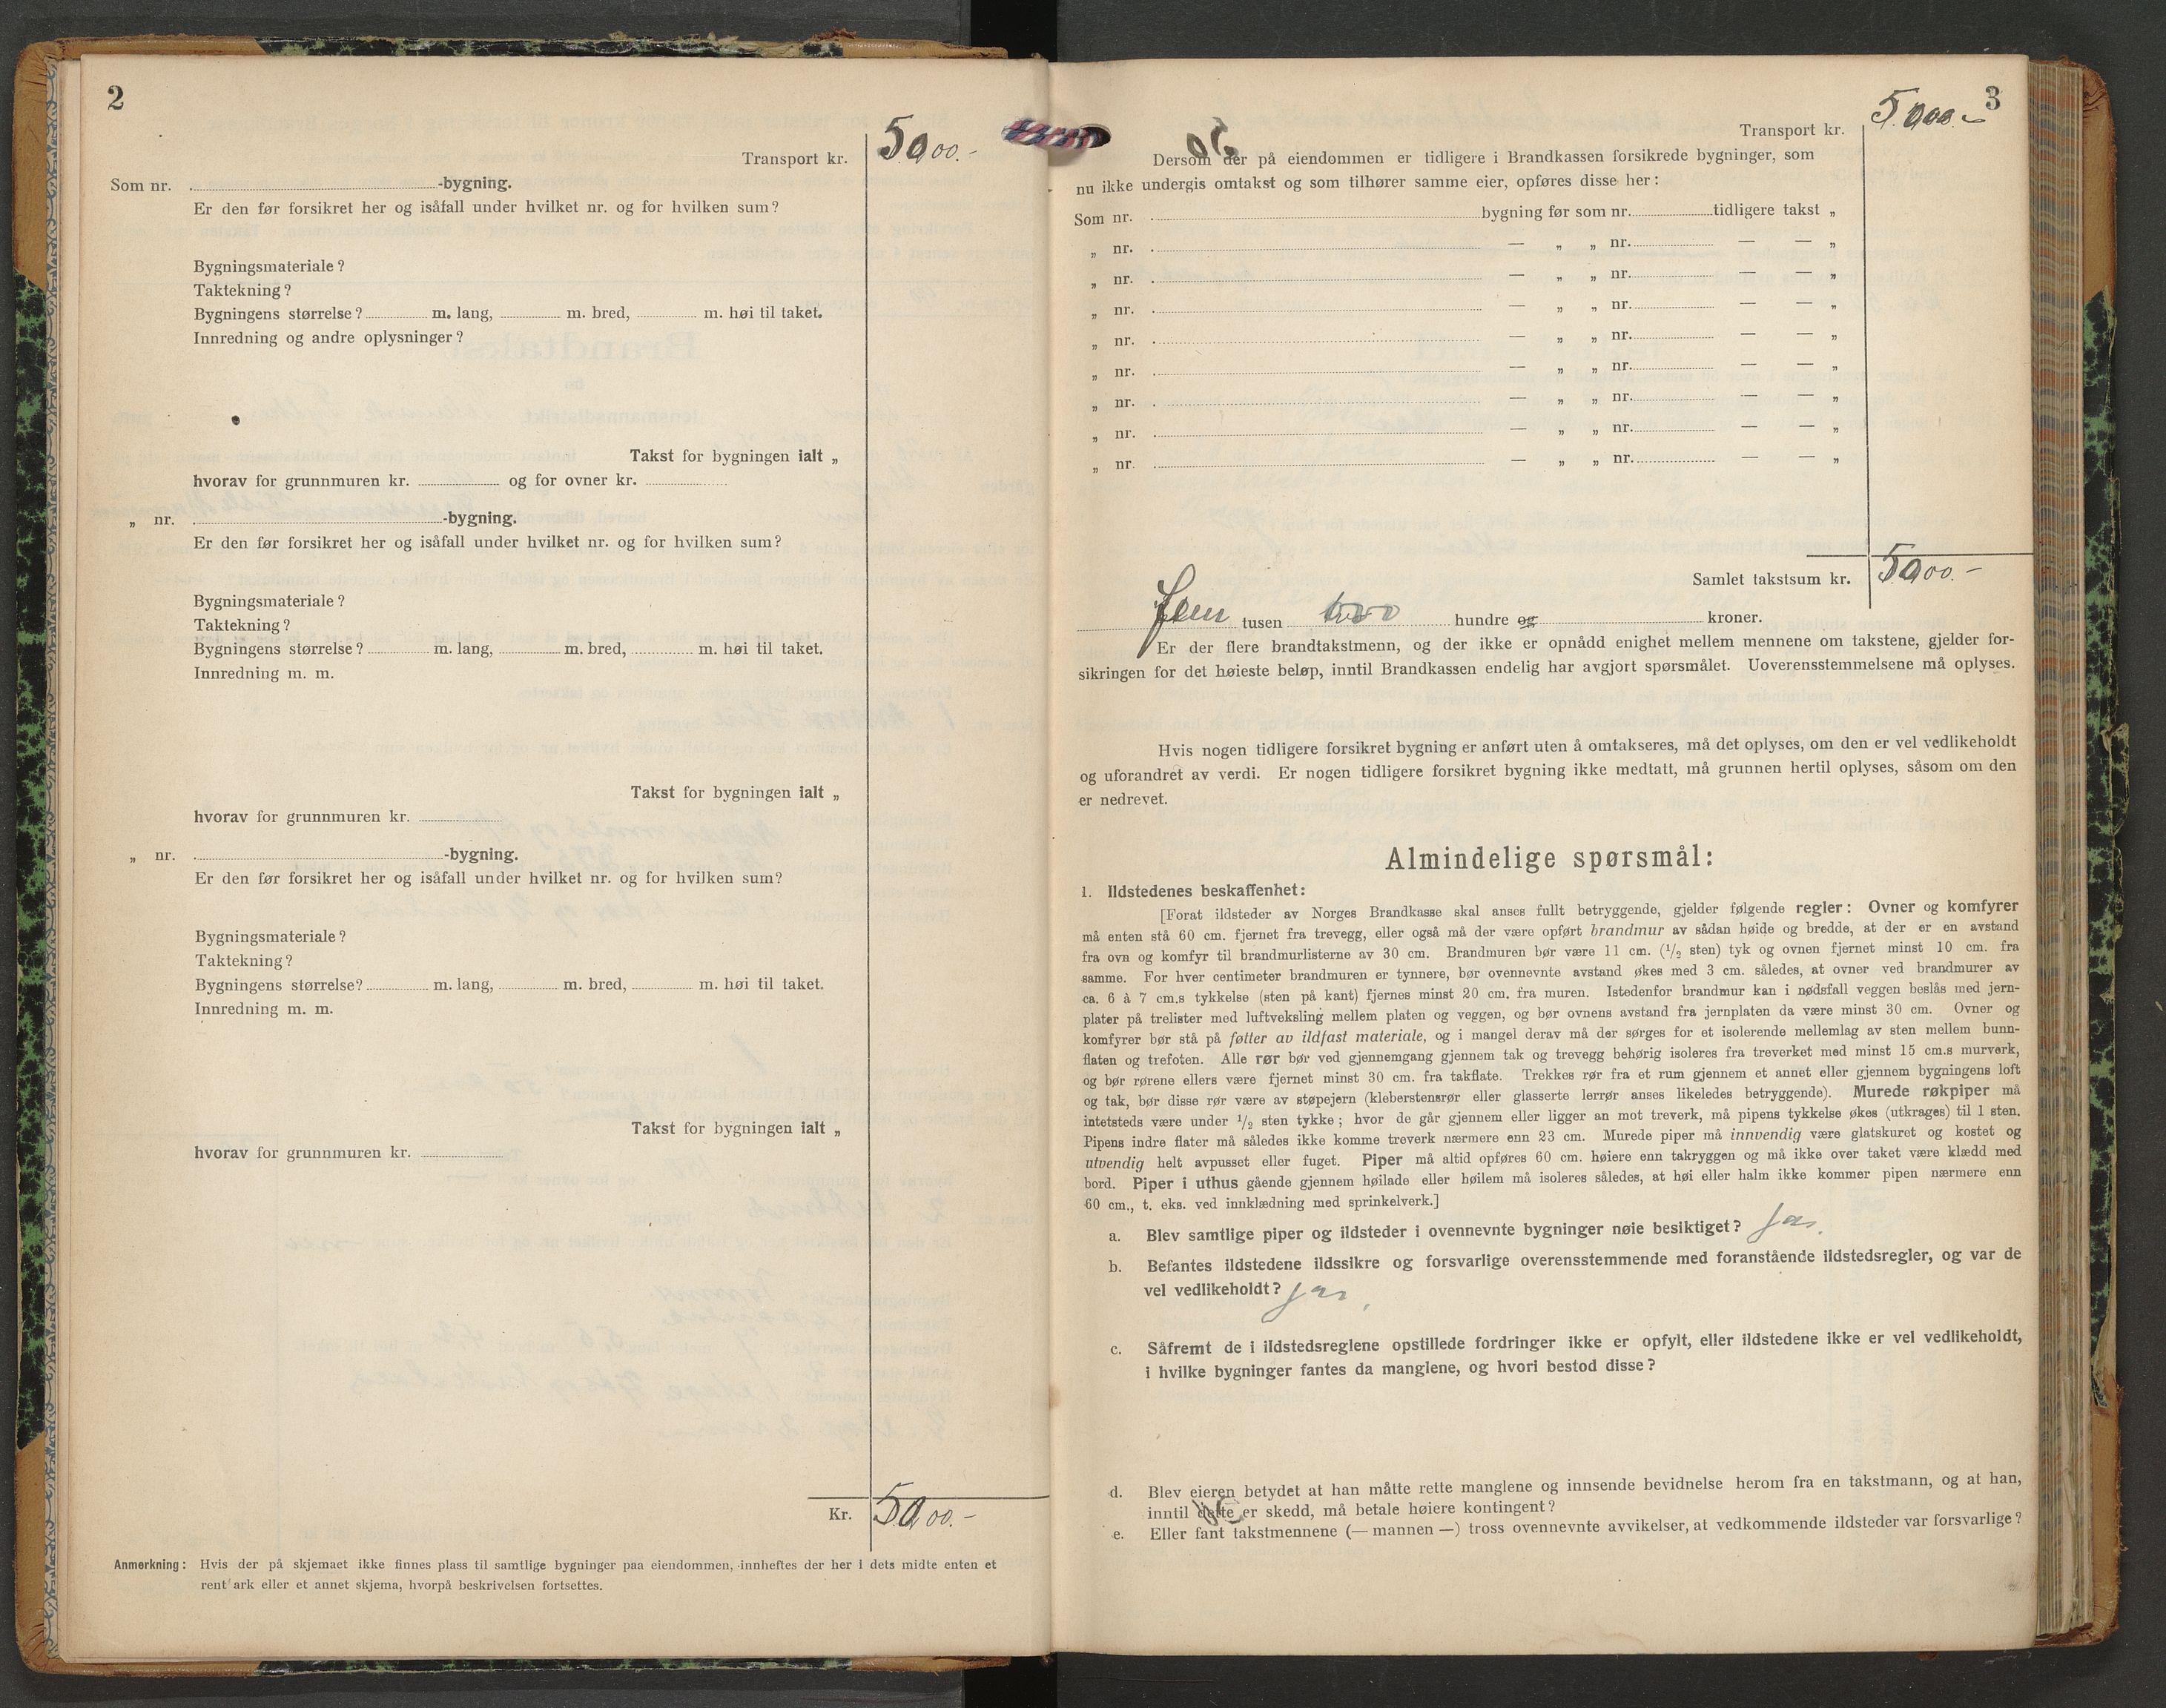 2
Transport kr. 5000.-
Som nr. -bygning.
Er den før forsikret her og isåfall under hvilket nr. og for hvilken sum?
Bygningsmateriale?
Taktekning?
Bygningens størrelse? m. lang, m. bred, m. høi til taket.
Innredning og andre oplysninger?
Takst for bygningen ialt „
hvorav for grunnmuren kr. og for ovner kr.
„ nr. -bygning.
Er den før forsikret her og isåfall under hvilket nr. og for hvilken sum?
Bygningsmateriale?
Taktekning?
Bygningens størrelse? m. lang, m. bred, m. høi til taket.
Innredning m. m.
Takst for bygningen ialt „
hvorav for grunnmuren kr.
„ nr. -bygning.
Er den før forsikret her og isåfall under hvilket nr. og for hvilken sum?
Bygningsmateriale?
Taktekning?
Bygningens størrelse? m. lang, m. bred, m. høi til taket.
Innredning m. m.
Takst for bygningen ialt „
hvorav for grunnmuren kr.
Kr. 5000.-
Anmerkning: Hvis der på skjemaet ikke finnes plass til samtlige bygninger paa eiendommen, innheftes der her i dets midte enten et
rent ark eller et annet skjema, hvorpå beskrivelsen fortsettes.
3
Transport kr. 5000.-
Dersom der på eiendommen er tidligere i Brandkassen forsikrede bygninger, som
nu ikke undergis omtakst og som tilhører samme eier, opføres disse her:
Som nr. bygning før som nr. tidligere takst „
„ nr. — „ „ nr. — — „
„ nr. — „ „ nr. — — „
„ nr. — „ „ nr. — — „
„ nr. — „ „ nr. — — „
„ nr. — „ „ nr. — — „
„ nr. — „ „ nr. — — „
„ nr. — „ „ nr. — — „
„ nr. — „ „ nr. — — „
Samlet takstsum kr. 5000.-
Fem tusen hundre og kroner.
Er der flere brandtakstmenn, og der ikke er opnådd enighet mellem mennene om takstene, gjelder for-
sikringen for det høieste beløp, inntil Brandkassen endelig har avgjort spørsmålet. Uoverensstemmelsene må oplyses.
Hvis nogen tidligere forsikret bygning er anført uten å omtakseres, må det oplyses, om den er vel vedlikeholdt
og uforandret av verdi. Er nogen tidligere forsikret bygning ikke medtatt, må grunnen hertil oplyses, såsom om den
er nedrevet.
Almindelige spørsmål:
1. Ildstedenes beskaffenhet:
[Forat ildsteder av Norges Brandkasse skal anses fullt betryggende, gjelder følgende regler: Ovner og komfyrer
må enten stå 60 cm. fjernet fra trevegg, eller også må der være opført brandmur av sådan høide og bredde, at der er en avstand
fra ovn og komfyr til brandmurlisterne av 30 cm. Brandmuren bør være 11 cm. (1/2 sten) tyk og ovnen fjernet minst 10 cm. fra
samme. For hver centimeter brandmuren er tynnere, bør ovennevnte avstand økes med 3 cm. således, at ovner ved brandmurer av
ca. 6 à 7 cm.s tykkelse (sten på kant) fjernes minst 20 cm. fra muren. Istedenfor brandmur kan i nødsfall veggen beslås med jern-
plater på trelister med luftveksling mellem platen og veggen, og bør ovnens avstand fra jernplaten da være minst 30 cm. Ovner og
komfyrer bør stå på føtter av ildfast materiale, og i mangel derav må der sørges for et isolerende mellemlag av sten mellem bunn-
flaten og trefoten. Alle rør bør ved gjennemgang gjennem tak og trevegg behørig isoleres fra treverket med minst 15 cm.s murverk,
og bør rørene ellers være fjernet minst 30 cm. fra takflate. Trekkes rør fra et rum gjennem et annet eller gjennem bygningens loft
og tak, bør disse rør være av støpejern (kleberstensrør eller glasserte lerrør anses likeledes betryggende). Murede røkpiper må
intetsteds være under 1/2 sten tykke; hvor de går gjennem eller ligger an mot treverk, må pipens tykkelse økes (utkrages) til 1 sten.
Pipens indre flater må således ikke komme treverk nærmere enn 23 cm. Murede piper må innvendig være glatskuret og kostet og
utvendig helt avpusset eller fuget. Piper må altid opføres 60 cm. høiere enn takryggen og må ikke over taket være klædd med
bord. Piper i uthus gående gjennem høilade eller høilem må isoleres således, at høi eller halm ikke kommer pipen nærmere enn
60 cm., t. eks. ved innklædning med sprinkelverk.]
a. Blev samtlige piper og ildsteder i ovennevnte bygninger nøie besiktiget? Ja.
b. Befantes ildstedene ildssikre og forsvarlige overensstemmende med foranstående ildstedsregler, og var de
vel vedlikeholdt? Ja.
c. Såfremt de i ildstedsreglene opstillede fordringer ikke er opfylt, eller ildstedene ikke er vel vedlikeholdt,
i hvilke bygninger fantes da manglene, og hvori bestod disse?
d. Blev eieren betydet at han måtte rette manglene og innsende bevidnelse herom fra en takstmann, og at han,
inntil dette er skedd, må betale høiere kontingent?
e. Eller fant takstmennene (— mannen —) tross ovennevnte avvikelser, at vedkommende ildsteder var forsvarlige?